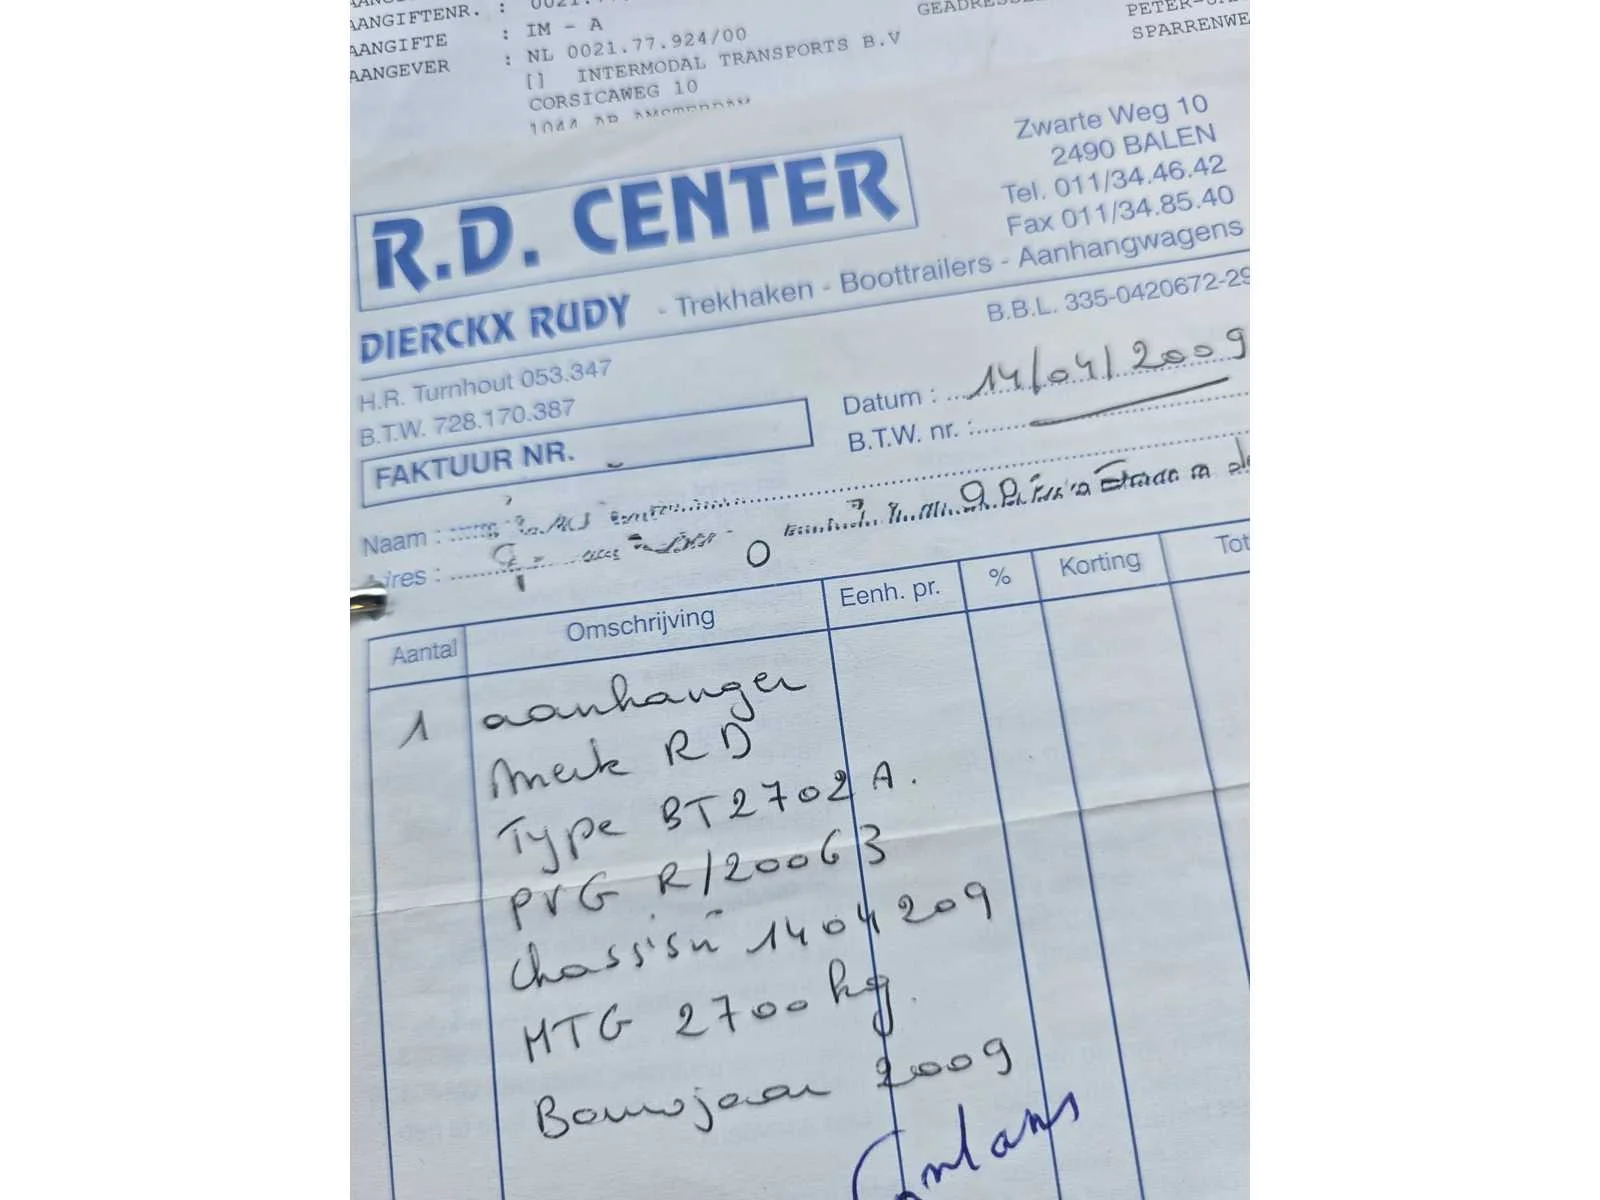 AANGIFTENR. :
AANGIFTE : IM - A
AANGEVER : NL 0021.77.924/00
[] INTERMODAL TRANSPORTS B.V
CORSICAWEG 10
1044 AP AMSTERDAM
SPARRENWE
R.D. CENTER
Zwarte Weg 10
2490 BALEN
Tel. 011/34.46.42
Fax 011/34.85.40
DIERCKX RUDY - Trekhaken - Boottrailers - Aanhangwagens
B.B.L. 335-0420672-29
H.R. Turnhout 053.347
B.T.W. 728.170.387
FAKTUUR NR.
Datum : 14/04/2009
B.T.W. nr. :
Naam :
Adres :
Aantal Omschrijving Eenh. pr. % Korting Tot
1 aanhanger
Merk RD
Type BT2702A.
PVG R/20063
Chassisn 1404209
MTG 2700kg.
Bouwjaar 2009